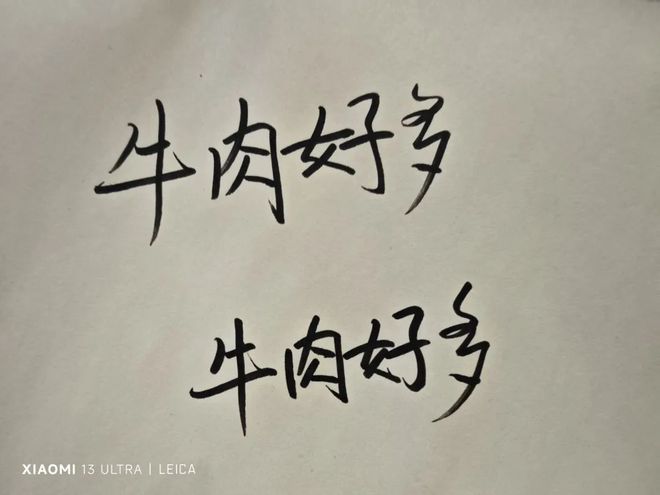 牛肉好多
牛肉好多
XIAOMI 13 ULTRA | LEICA